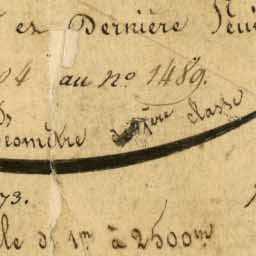 et Dernière Feui
04 au nº 1489.
Géomètre de 1ère classe
73.
lle d 1m à 2500m